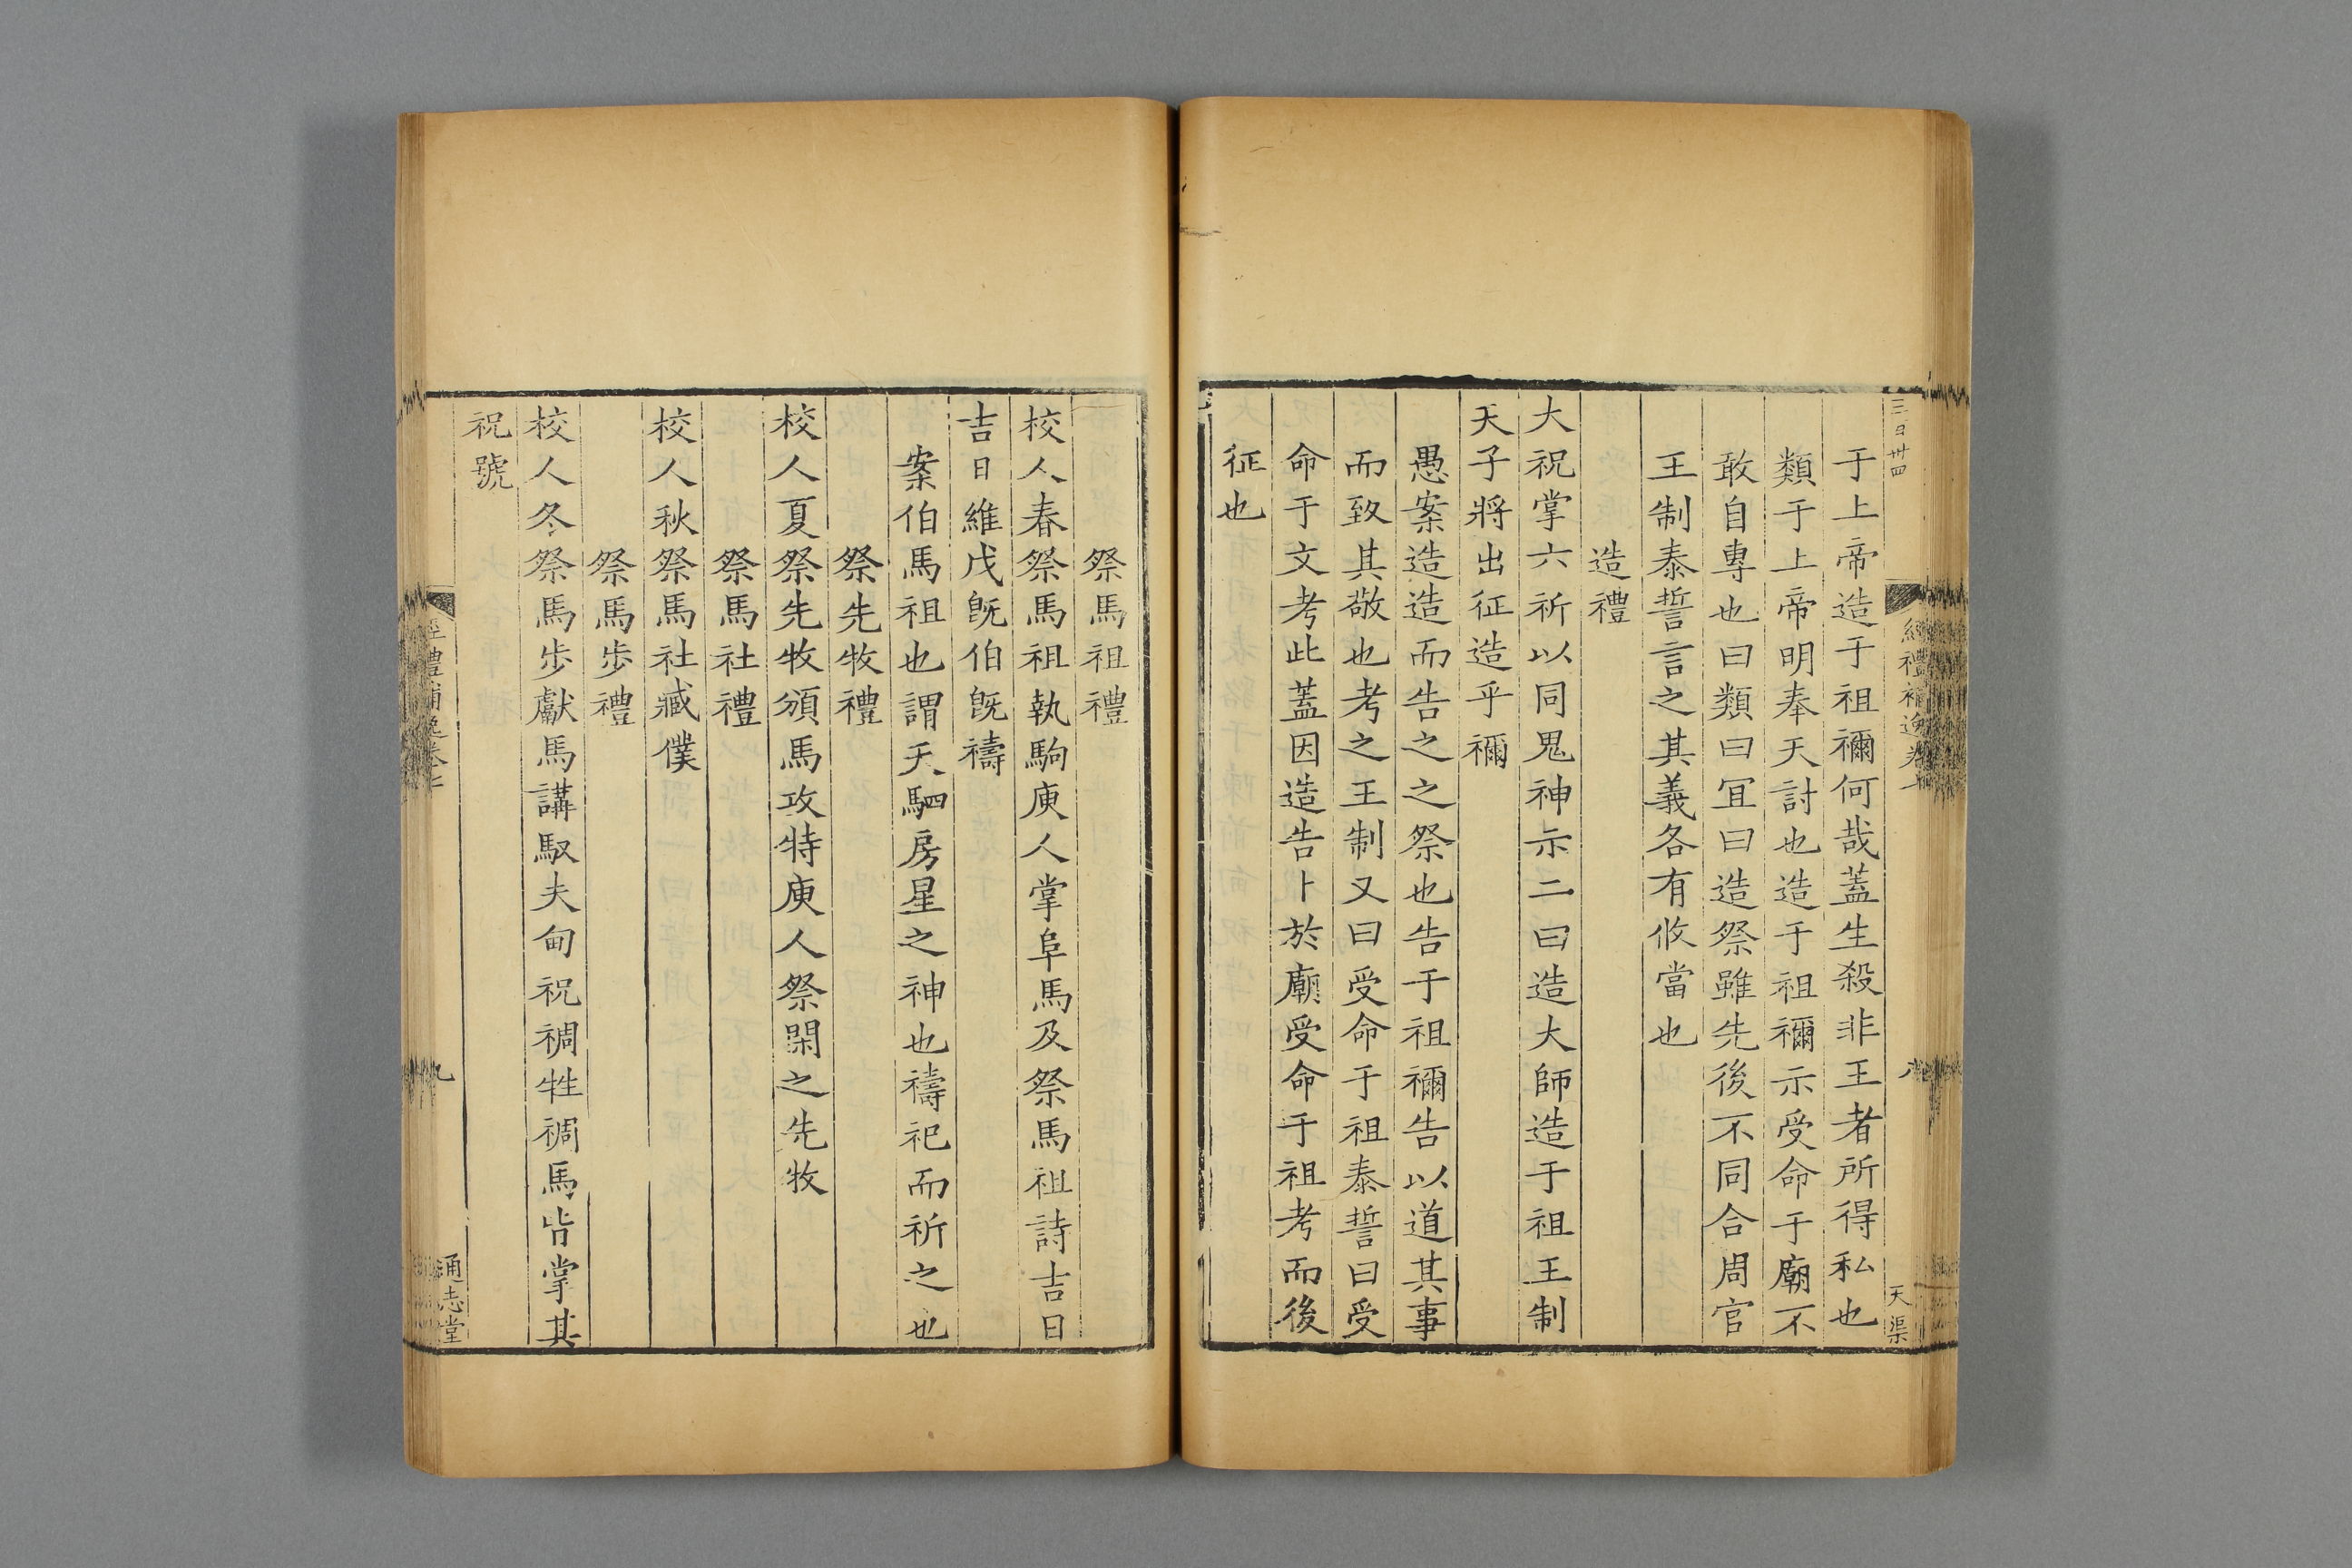 三百卅四
經禮補逸卷七
八
天渠
于上帝造于祖禰何哉蓋生殺非王者所得私也
類于上帝明奉天討也造于祖禰示受命于廟不
敢自專也曰類曰宜曰造祭雖先後不同合周官
王制泰誓言之其義各有攸當也
造禮
大祝掌六祈以同鬼神示二曰造大師造于祖王制
天子將出征造乎禰
愚案造造而告之之祭也告于祖禰告以道其事
而致其敬也考之王制又曰受命于祖泰誓曰受
命于文考此蓋因造告卜於廟受命于祖考而後
征也
祭馬祖禮
校人春祭馬祖執駒庾人掌阜馬及祭馬祖詩吉日
吉日維戊旣伯旣禱
案伯馬祖也謂天駟房星之神也禱祀而祈之也
祭先牧禮
校人夏祭先牧頒馬攻特庾人祭閑之先牧
祭馬社禮
校人秋祭馬社臧僕
祭馬步禮
校人冬祭馬步獻馬講馭夫甸祝禂牲禂馬皆掌其
祝號
經禮補逸卷七
九
通志堂